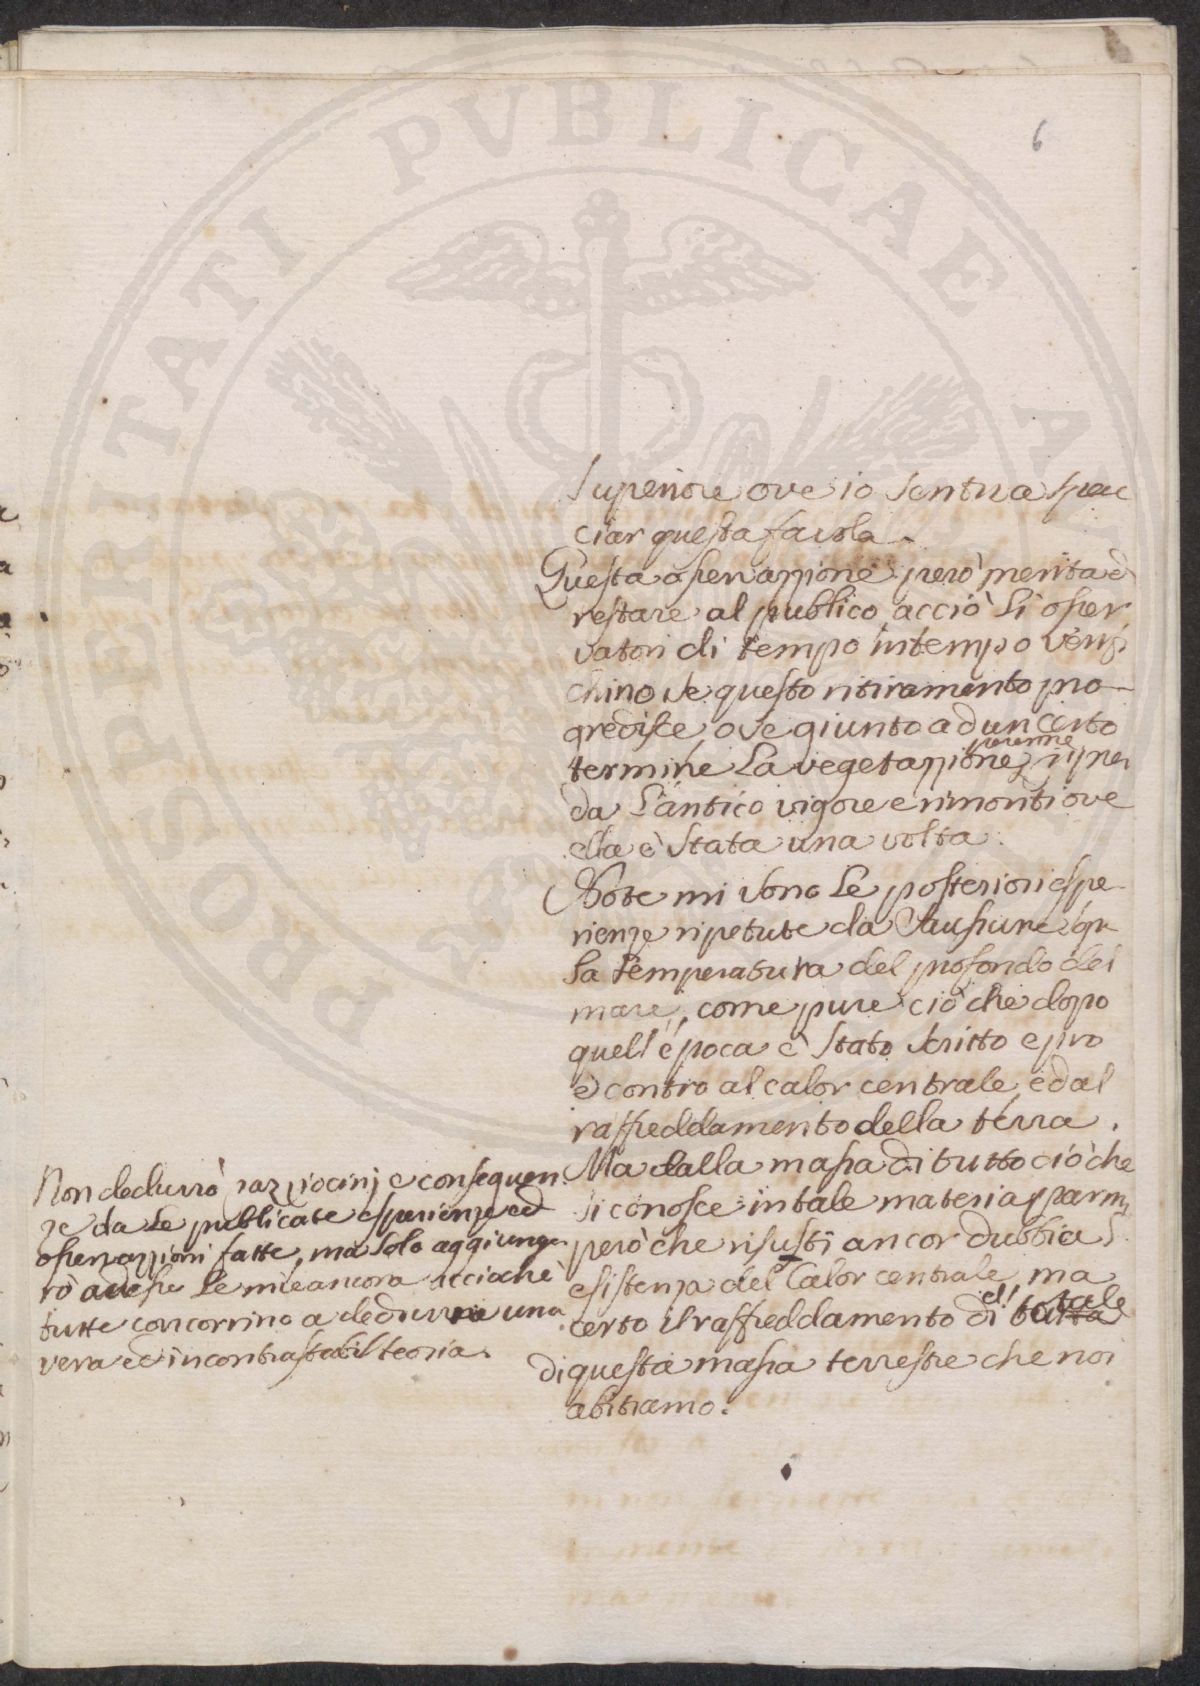 6
Superiore ove io sentiva spac
ciar questa favola.
Questa osservazzione però merita d
restare al publico acciò li osser
vatori di tempo in tempo verifi
chino se questo ritiramento pro
gredisce, ove giunto ad un certo
termine la vegetazzione perenne ripren
da l'antico vigore e rimonti ove
ella è stata una volta.
Note mi sono le posteriori espe
rienze ripetute da Saussure
la temperatura del profondo del
mare, come pure ciò che dopo
quell'epoca è stato scritto e pro
e contro al calor centrale, ed al
raffreddamento della terra.
Ma dalla massa di tutto ciò che
si conosce in tale materia parmi
però che risulti ancor dubbia l
esistenza del Calor centrale, ma
certo il raffreddamento di tutta
el totale
di questa massa terrestre che noi
abitiamo.
Non dedurrò razziocinj e conseguen
ze da le publicate esperienze ed
osservazzioni fatte, ma solo aggiunge
rò ad esse le mie ancora acciochè
tutte concorrino a dedurre una
vera ed incontrastabil teoria.
PROSPERITATI PVBLICAE